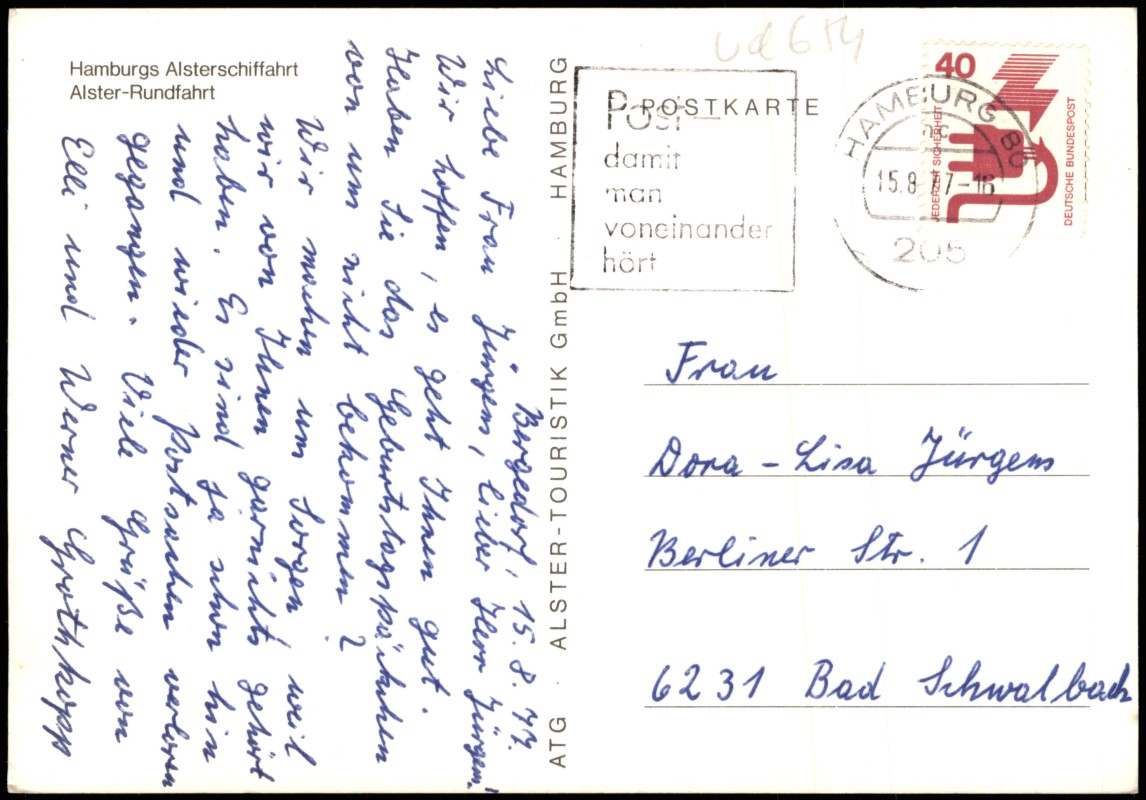 Hamburgs Alsterschiffahrt
Alster-Rundfahrt
Bergedorf, 15.8.77.
Liebe Frau Jürgens, lieber Herr Jürgens!
Wir hoffen, es geht Ihnen gut.
Haben Sie das Geburtstagspäckchen
von uns nicht bekommen?
Wir machen uns Sorgen weil
wir von Ihnen garnichts gehört
haben. Es sind ja schon hin
und wieder Postsachen verloren
gegangen. Viele Grüße von
Elli und Werner Grothkopp
ATG · ALSTER-TOURISTIK GmbH · HAMBURG
ud 654
POSTKARTE
Post
damit
man
voneinander
hört
HAMBURG 80
15.8.77-16
205
40
JEDERZEIT SICHERHEIT
DEUTSCHE BUNDESPOST
Frau
Dora-Lisa Jürgens
Berliner Str. 1
6231 Bad Schwalbach